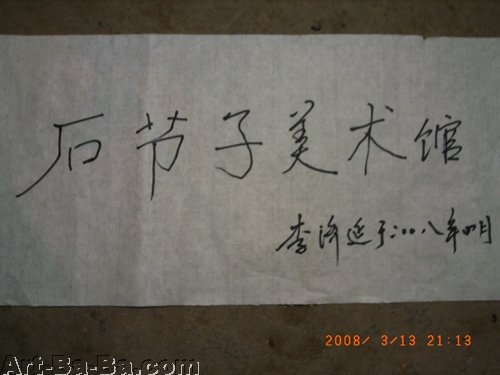 石节子美术馆
李沛延于二〇〇八年四月
2008/ 3/13 21:13
Art-Ba-Ba.com